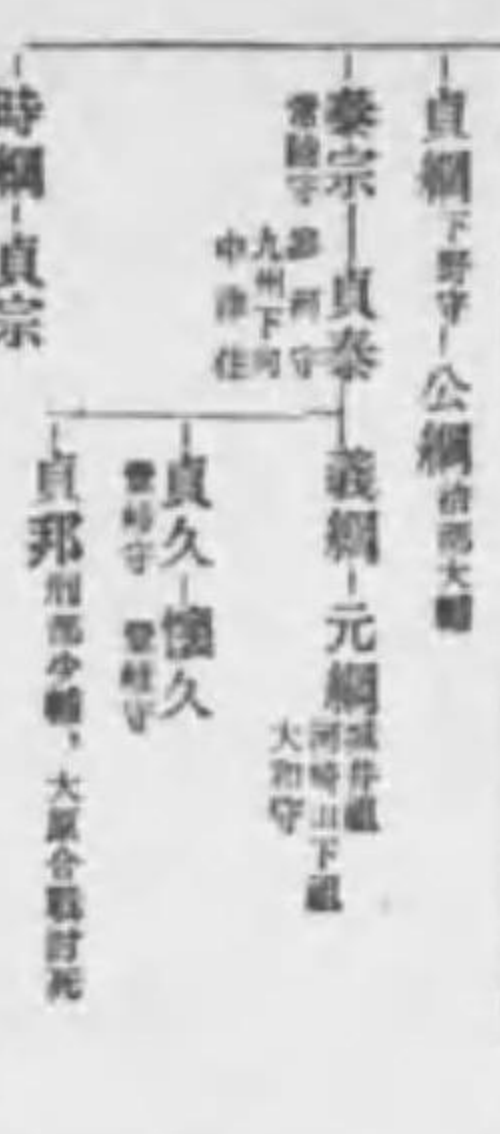 貞綱 下野守
公綱 治部大輔
泰宗
常陸守
貞泰
駿河守
九州下向
中津住
義綱
元綱
城井祖
河崎山下祖
大和守
貞久
懐久
貞邦 刑部少輔，大原合戰討死
時綱
貞宗